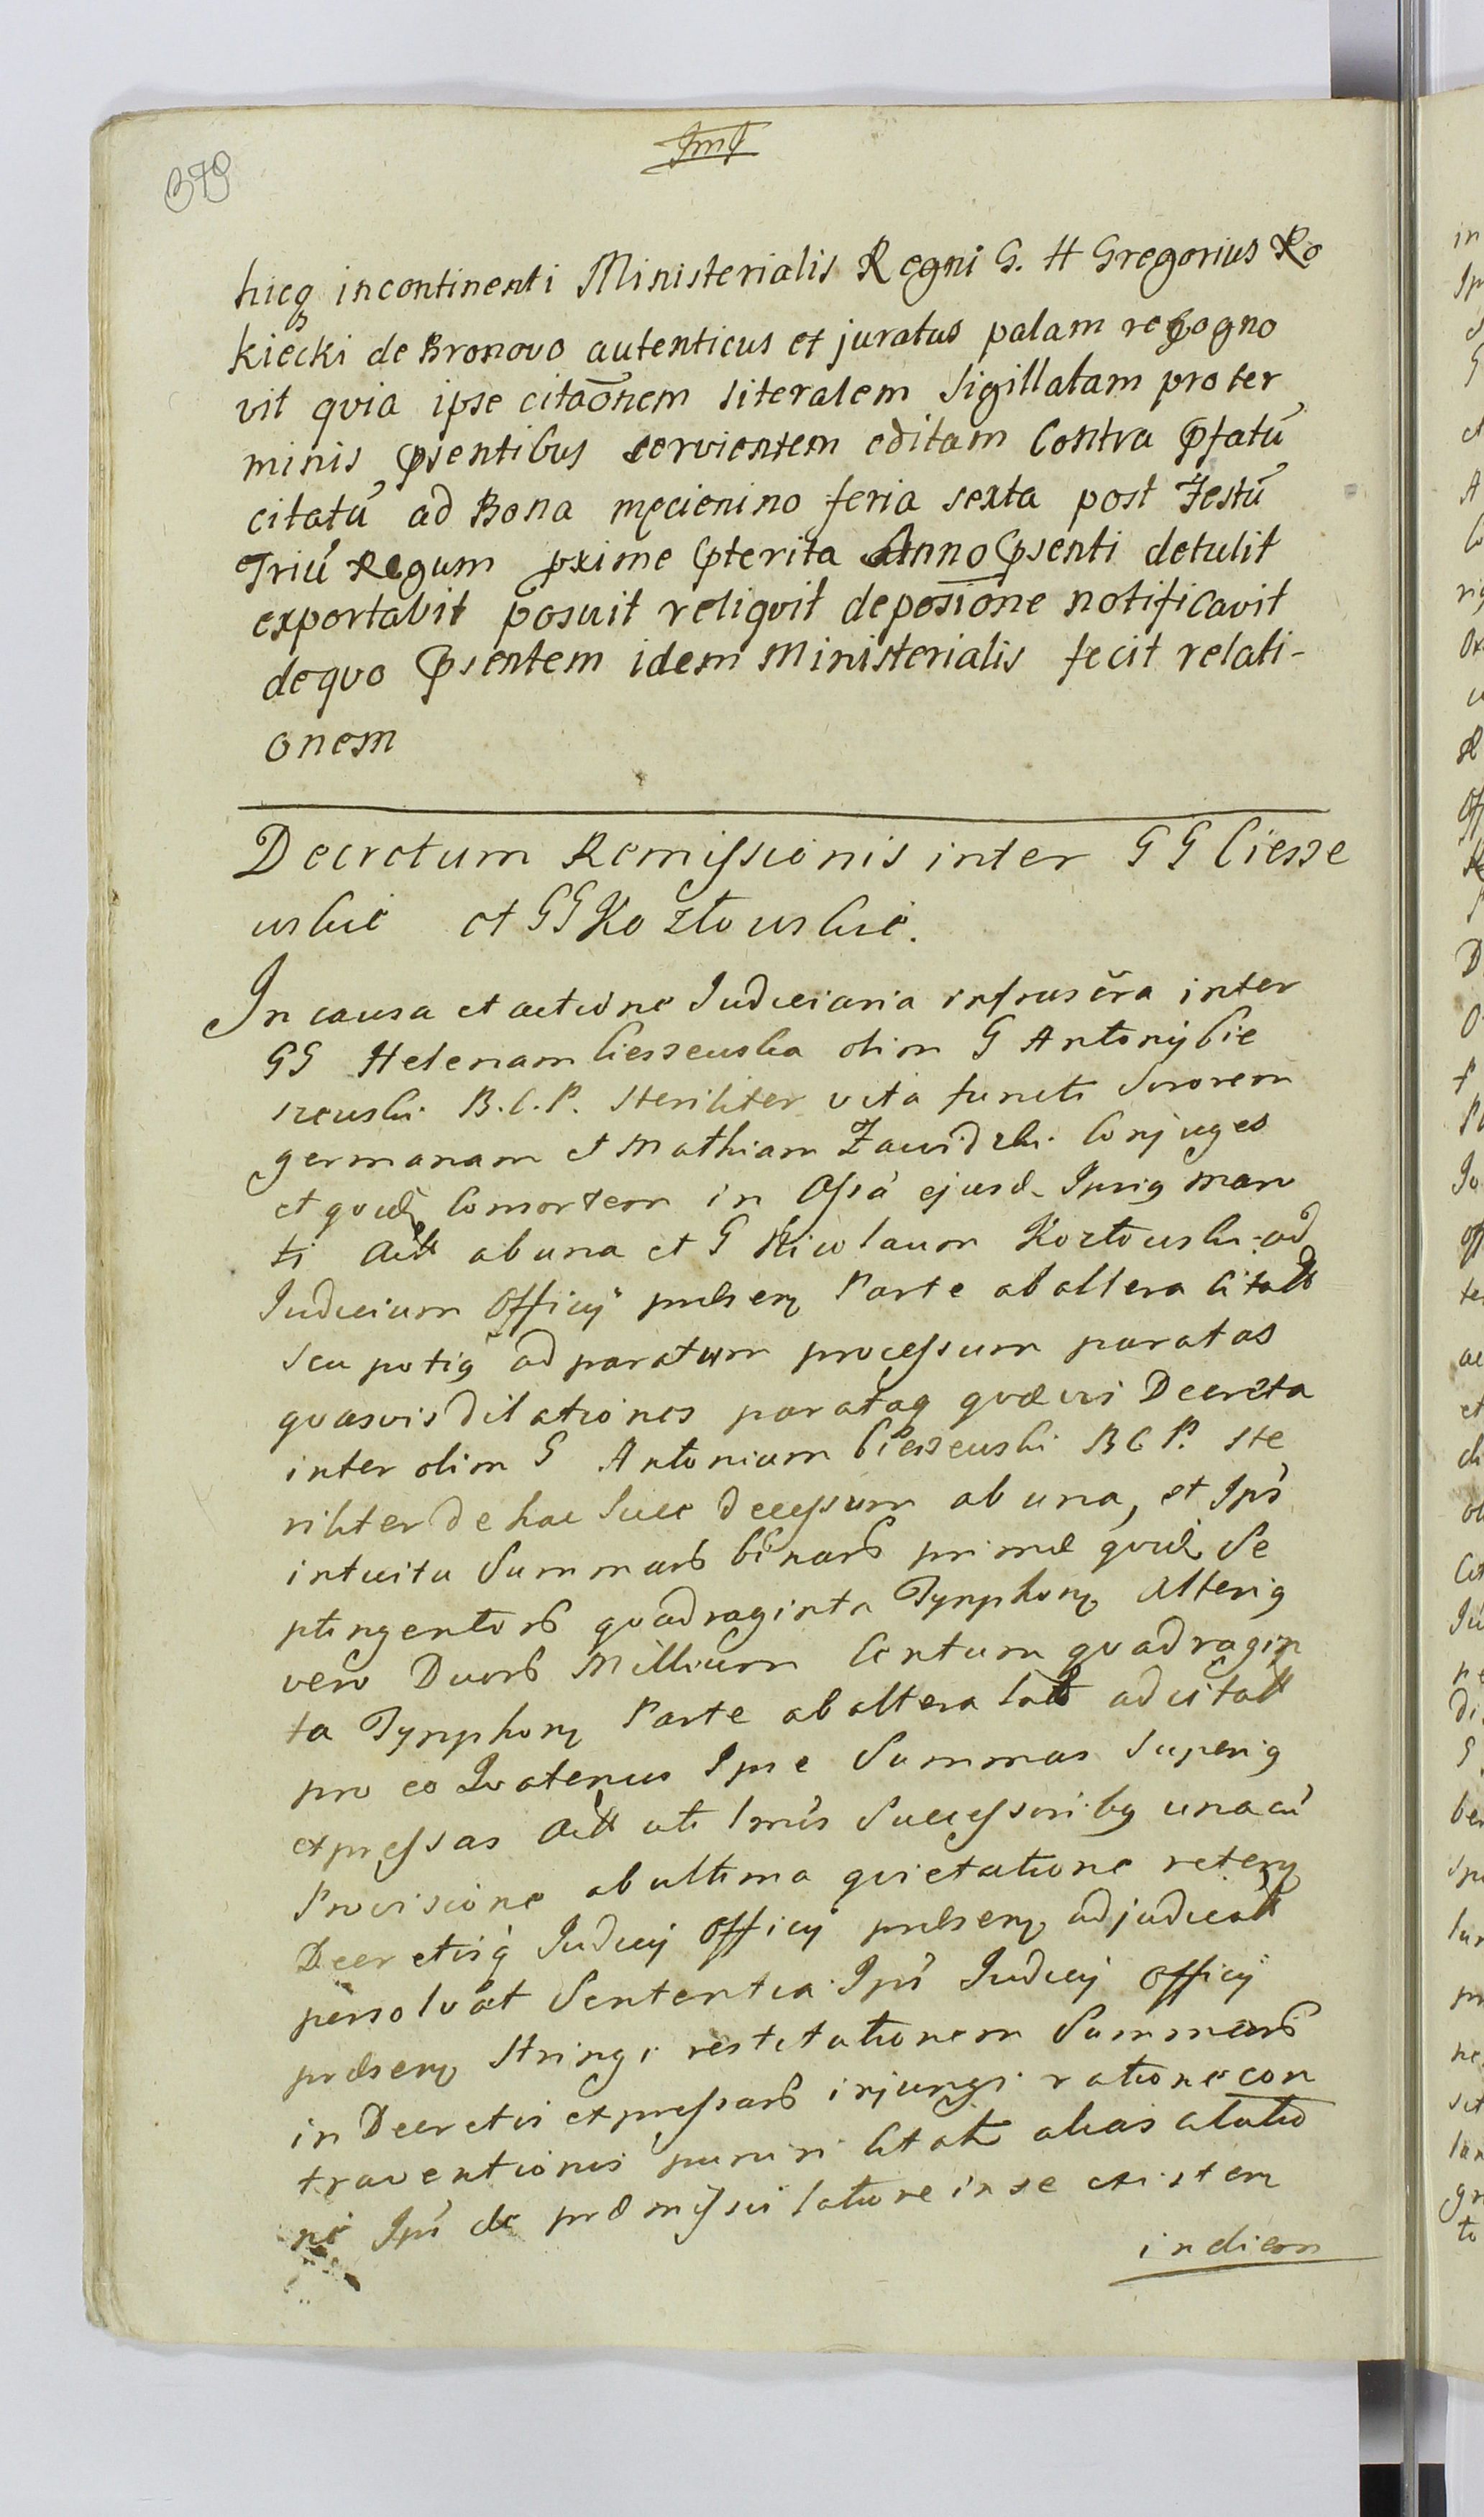 379
hicq incontinenti Ministerialis Regni G. H Gregorius Ro
kiecki de Bronovo autenticus et juratus palam recogno
vit qvia ipse citaōnem literalem Sigillatam pro ter
minis psentibus servientem editam Contra pfatū
citatū ad Bona męcienino feria sexta post Festū
Triū Regum pxime pterita Anno psenti detulit
exportabit posuit reliqvit deposione notificavit
deqvo psentem idem Ministerialis fecit relati-
onem
Decretum Remissionis inter GG Ciesze
wskie et GG Kozłowskie.
In causa et actione Judiciaria infrascra inter
GG Helenam Cieszewska olim G Antonij Cie
szewski B.C.P. steriliter vita functi Sororem
germanam et Mathiam Zawidzki Conjuges
et qvidē Consortem in Assa ejusd. Ipsiq mari
ti Actt ab una et G Nicolaum Kozłowski ad
Judicium Officij pnlsenq Parte ab altera Citatt
seu potiq ad paratum processum paratas
qvasvis dilationes parataq qvævis Decreta
inter olim G Antonium Cieszewski B C P. ste
riliter de hac luce decessum ab una, et Ipm
intuitu Summarb binarb primæ qvidē Se
ptingentorb qvadraginta Tynphonq Alteriq
vero Duorb Millium Centum qvadragin
ta Tynphonq Parte ab altera latt ad citatt
pro eo Qvatenus Ipse Summas Superiq
expressas Actt uti Imis Successoribq una cū
Provisione ab ultima qvietatione retenq
Decretisq Judicij Officij pnlsenq adjudicatt
persolvat Sententia Ipi Judicij Officij
pnlsenq Stringi restitutionem Summarb
in Decretis expressarb injungi ratione con
traventionis puniri Citatt alias Citatio
ne Ipi de præmissis latiore in se existen
indicem